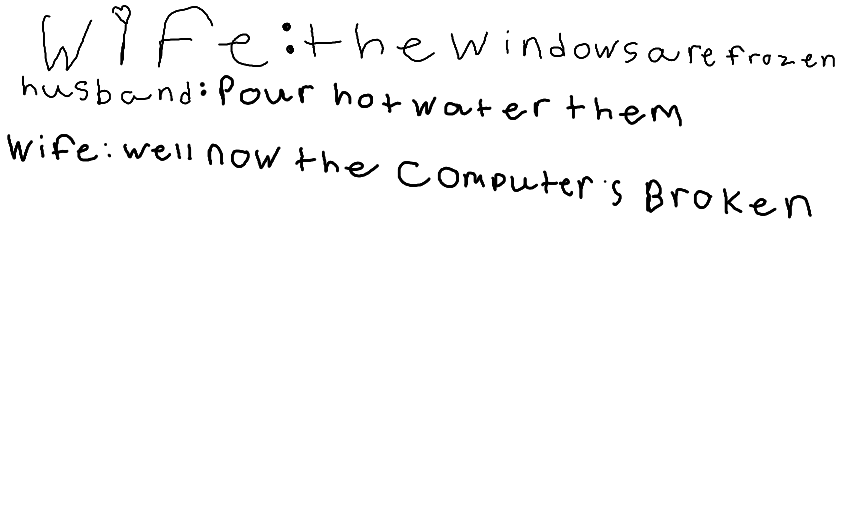 wife: the windows are frozen
husband: Pour hot water them
Wife: well now the Computer's Broken